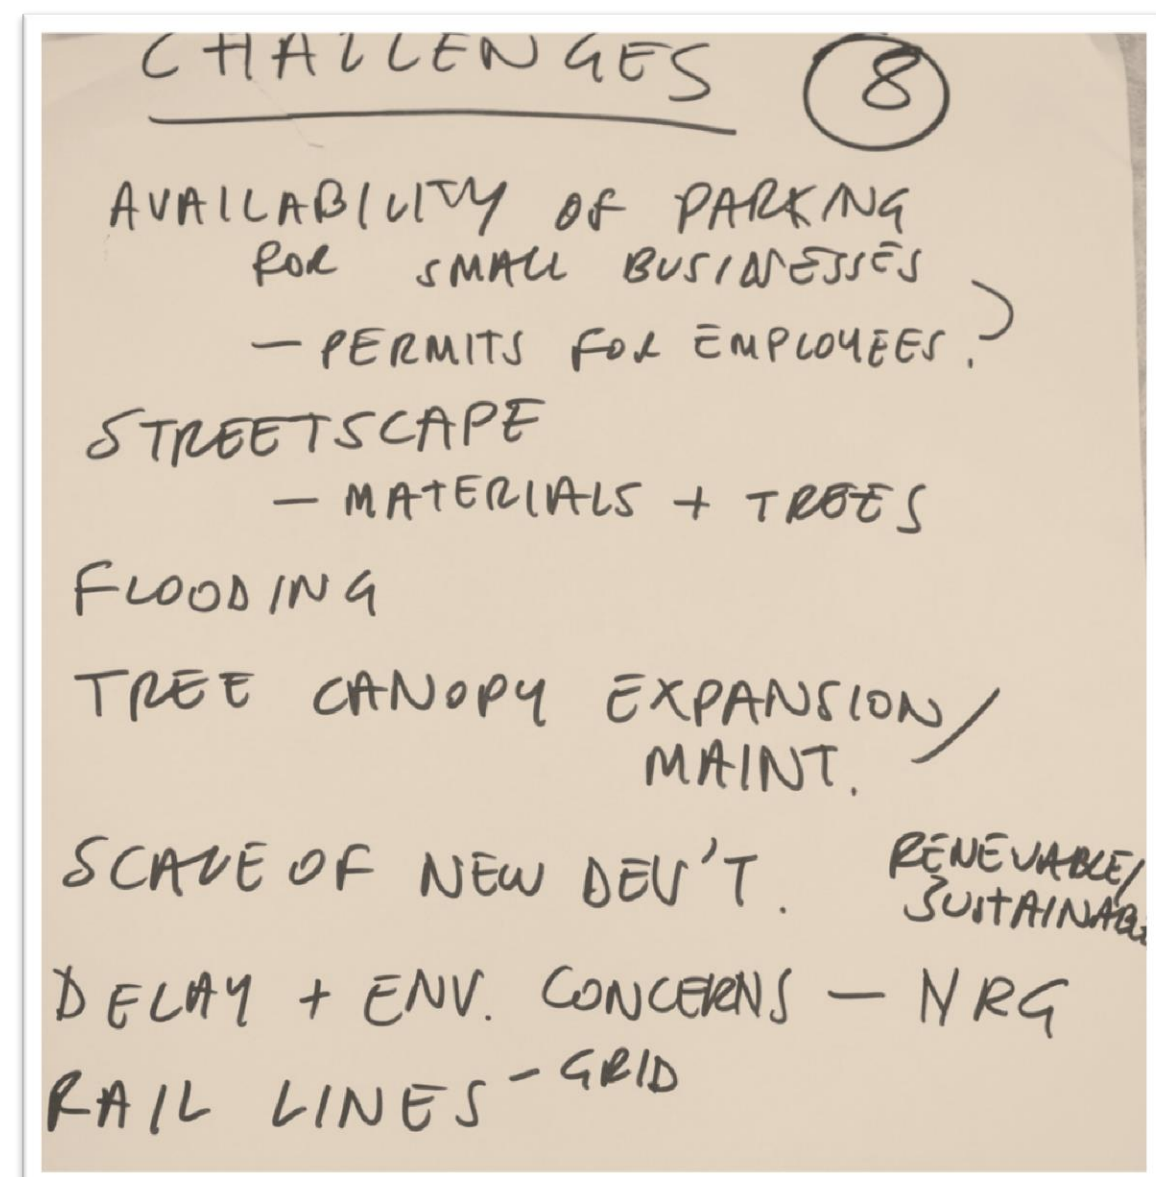 CHALLENGES 8
AVAILABILITY OF PARKING
FOR SMALL BUSINESSES
- PERMITS FOR EMPLOYEES?
STREETSCAPE
- MATERIALS + TREES
FLOODING
TREE CANOPY EXPANSION/
MAINT.
SCALE OF NEW DEV'T.
RENEWABLE/
SUSTAINABL
DELAY + ENV. CONCERNS - NRG
RAIL LINES - GRID